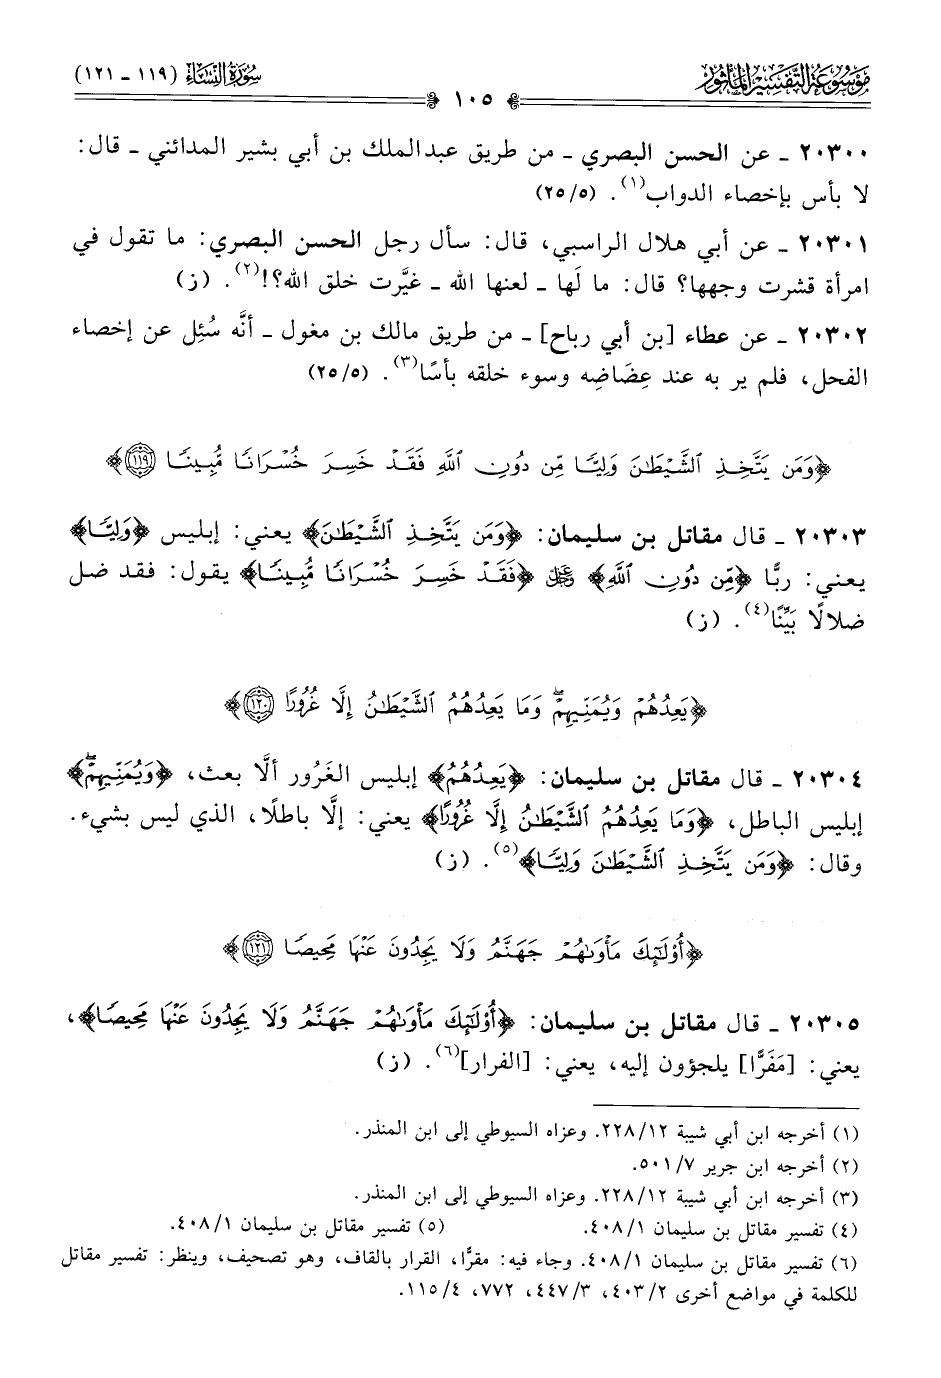 مَوْسُوعَة التَّفْسِير المَأْثُور
سُورَةُ النِّسَاء (١١٩ - ١٢١)
١٠٥
٢٠٣٠٠ - عن الحسن البصري - من طريق عبدالملك بن أبي بشير المدائني - قال:
لا بأس بإخصاء الدواب(١). (٢٥/٥)
٢٠٣٠١ - عن أبي هلال الراسبي، قال: سأل رجل الحسن البصري: ما تقول في
امرأة قشرت وجهها؟ قال: ما لَها - لعنها الله - غيَّرت خلق الله؟!(٢). (ز)
٢٠٣٠٢ - عن عطاء [بن أبي رباح] - من طريق مالك بن مغول - أنَّه سُئِل عن إخصاء
الفحل، فلم ير به عند عِضَاضِه وسوء خلقه بأسًا(٣). (٢٥/٥)
﴿وَمَن يَتَّخِذِ ٱلشَّيْطَـٰنَ وَلِيًّا مِّن دُونِ ٱللَّهِ فَقَدْ خَسِرَ خُسْرَانًا مُّبِينًا ١١٩﴾
٢٠٣٠٣ - قال مقاتل بن سليمان: ﴿وَمَن يَتَّخِذِ ٱلشَّيْطَـٰنَ﴾ يعني: إبليس ﴿وَلِيًّا﴾
يعني: ربًّا ﴿مِّن دُونِ ٱللَّهِ﴾ عَزَّوَجَلَّ ﴿فَقَدْ خَسِرَ خُسْرَانًا مُّبِينًا﴾ يقول: فقد ضل
ضلالًا بَيِّنًا(٤). (ز)
﴿يَعِدُهُمْ وَيُمَنِّيهِمْ ۖ وَمَا يَعِدُهُمُ ٱلشَّيْطَـٰنُ إِلَّا غُرُورًا ١٢٠﴾
٢٠٣٠٤ - قال مقاتل بن سليمان: ﴿يَعِدُهُمْ﴾ إبليس الغَرُور ألَّا بعث، ﴿وَيُمَنِّيهِمْ ۖ﴾
إبليس الباطل، ﴿وَمَا يَعِدُهُمُ ٱلشَّيْطَـٰنُ إِلَّا غُرُورًا﴾ يعني: إلَّا باطلًا، الذي ليس بشيء.
وقال: ﴿وَمَن يَتَّخِذِ ٱلشَّيْطَـٰنَ وَلِيًّا﴾(٥). (ز)
﴿أُو۟لَـٰٓئِكَ مَأْوَىٰهُمْ جَهَنَّمُ وَلَا يَجِدُونَ عَنْهَا مَحِيصًا ١٢١﴾
٢٠٣٠٥ - قال مقاتل بن سليمان: ﴿أُو۟لَـٰٓئِكَ مَأْوَىٰهُمْ جَهَنَّمُ وَلَا يَجِدُونَ عَنْهَا مَحِيصًا﴾،
يعني: [مَفَرًّا] يلجؤون إليه، يعني: [الفرار](٦). (ز)
(١) أخرجه ابن أبي شيبة ٢٢٨/١٢. وعزاه السيوطي إلى ابن المنذر.
(٢) أخرجه ابن جرير ٥٠١/٧.
(٣) أخرجه ابن أبي شيبة ٢٢٨/١٢. وعزاه السيوطي إلى ابن المنذر.
(٤) تفسير مقاتل بن سليمان ٤٠٨/١. (٥) تفسير مقاتل بن سليمان ٤٠٨/١.
(٦) تفسير مقاتل بن سليمان ٤٠٨/١. وجاء فيه: مقرًّا، القرار بالقاف، وهو تصحيف، وينظر: تفسير مقاتل
للكلمة في مواضع أخرى ٤٠٣/٢، ٤٤٧/٣، ٧٧٢، ١١٥/٤.